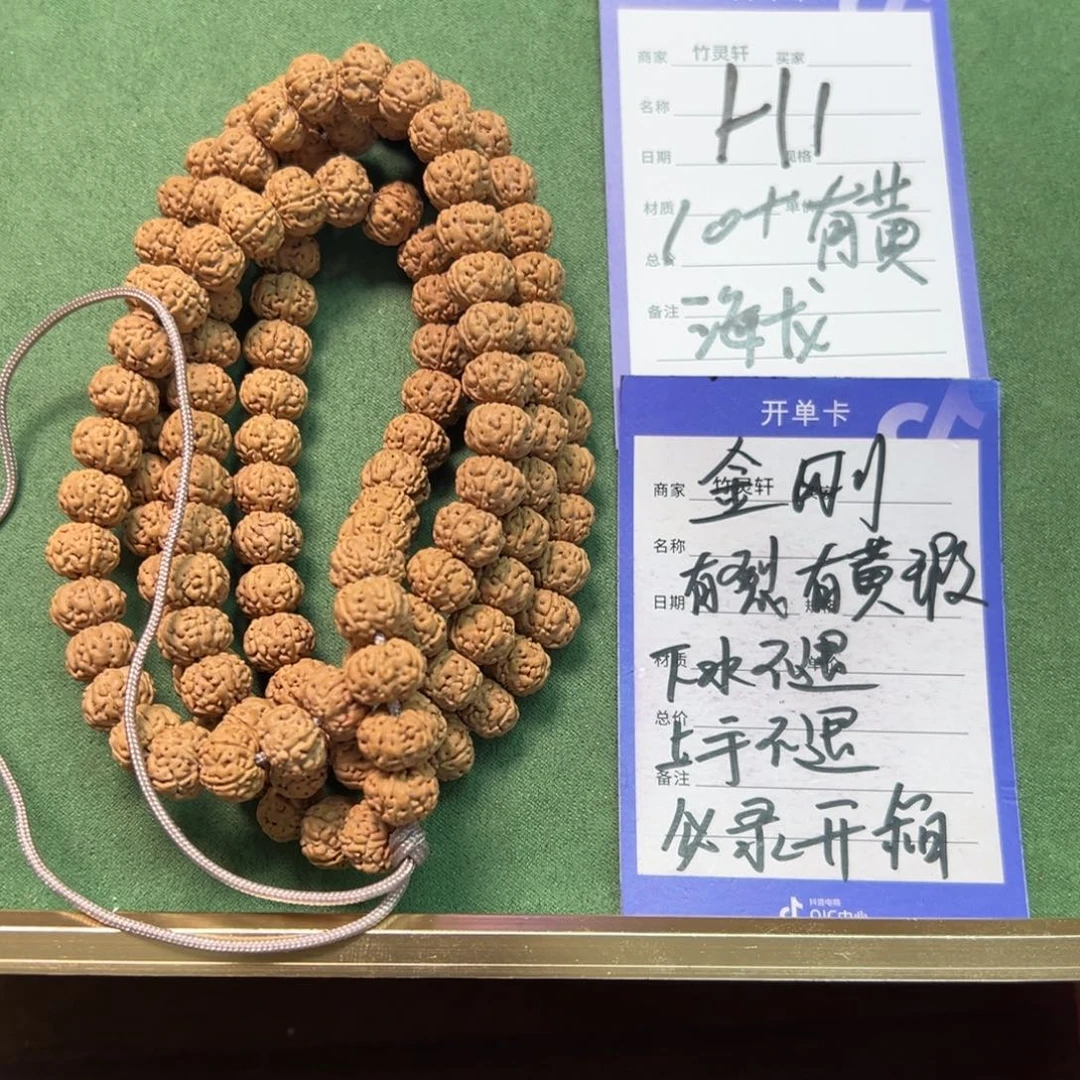 商家 竹灵轩 买家
名称
H11
日期 规格
材质 单价
10+有黄
总价
备注
海龙
开单卡
金刚
商家 竹灵轩
名称
有裂 有黄瑕
日期 规格
下水不退
材质 单价
总价
上手不退
备注
必录开箱
抖音电商